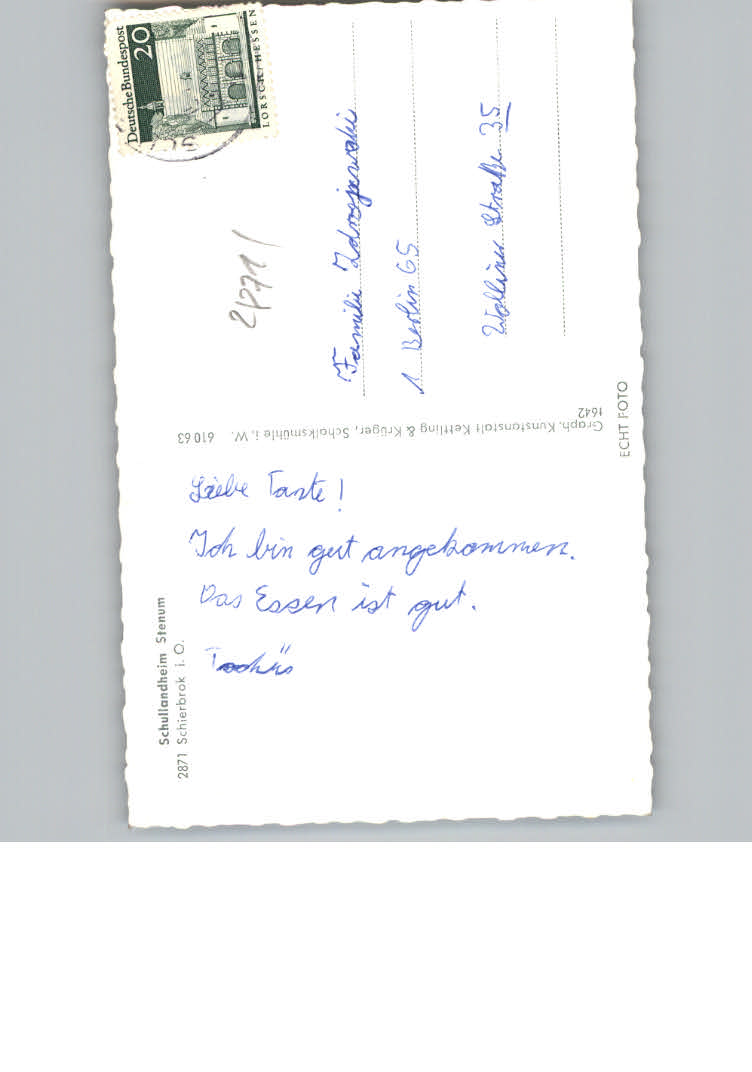 Deutsche Bundespost
20
LORSCH/HESSEN
2/271/
Familie Zdrojewski
1 Berlin 65
Wolliner Straße 35
Graph. Kunstanstalt Kettling & Krüger, Schalksmühle i. W. 610 63
1642
ECHT FOTO
Schullandheim Stenum
2871 Schierbrok i. O.
Liebe Tante!
Ich bin gut angekommen.
Das Essen ist gut.